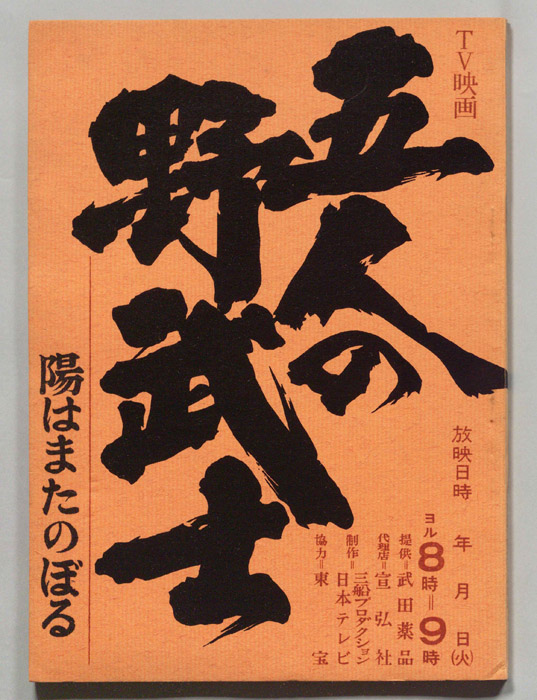 TV映画
五人の
野武士
陽はまたのぼる
放映日時 年 月 日(火)
ヨル8時=9時
提供=武田薬品
代理店=宣弘社
制作=三船プロダクション
日本テレビ
協力=東宝